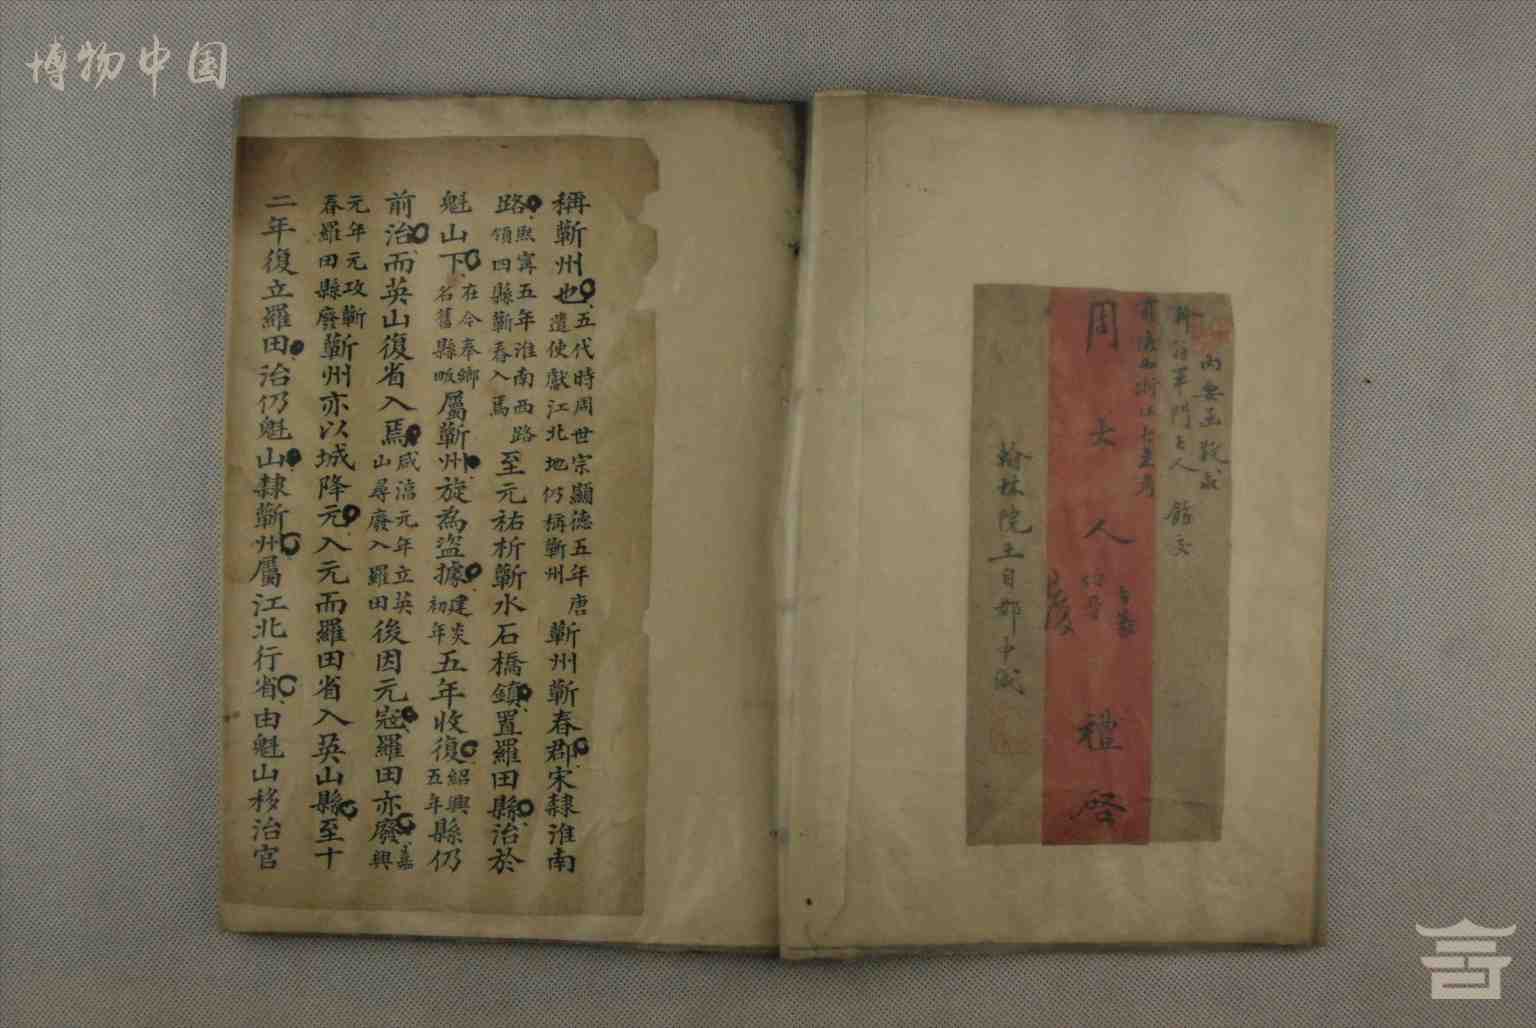 博物中国
內要函敬求
周大人
禮啓
翰林院王自都中緘
稱蘄州也五代時周世宗顯德五年唐遣使獻江北地仍稱蘄州蘄州蘄春郡宋隸淮南
路熙寧五年淮南西路領四縣蘄春入焉至元祐析蘄水石橋鎮置羅田縣治於
魁山下在今奉鄉名舊縣畈屬蘄州旋為盜據建炎初年五年收復紹興五年縣仍
前治而英山復省入焉咸淳元年立英山尋廢入羅田後因元寇羅田亦廢嘉興
元年元攻蘄春羅田縣廢蘄州亦以城降元入元而羅田省入英山縣至十
二年復立羅田治仍魁山隸蘄州屬江北行省由魁山移治官